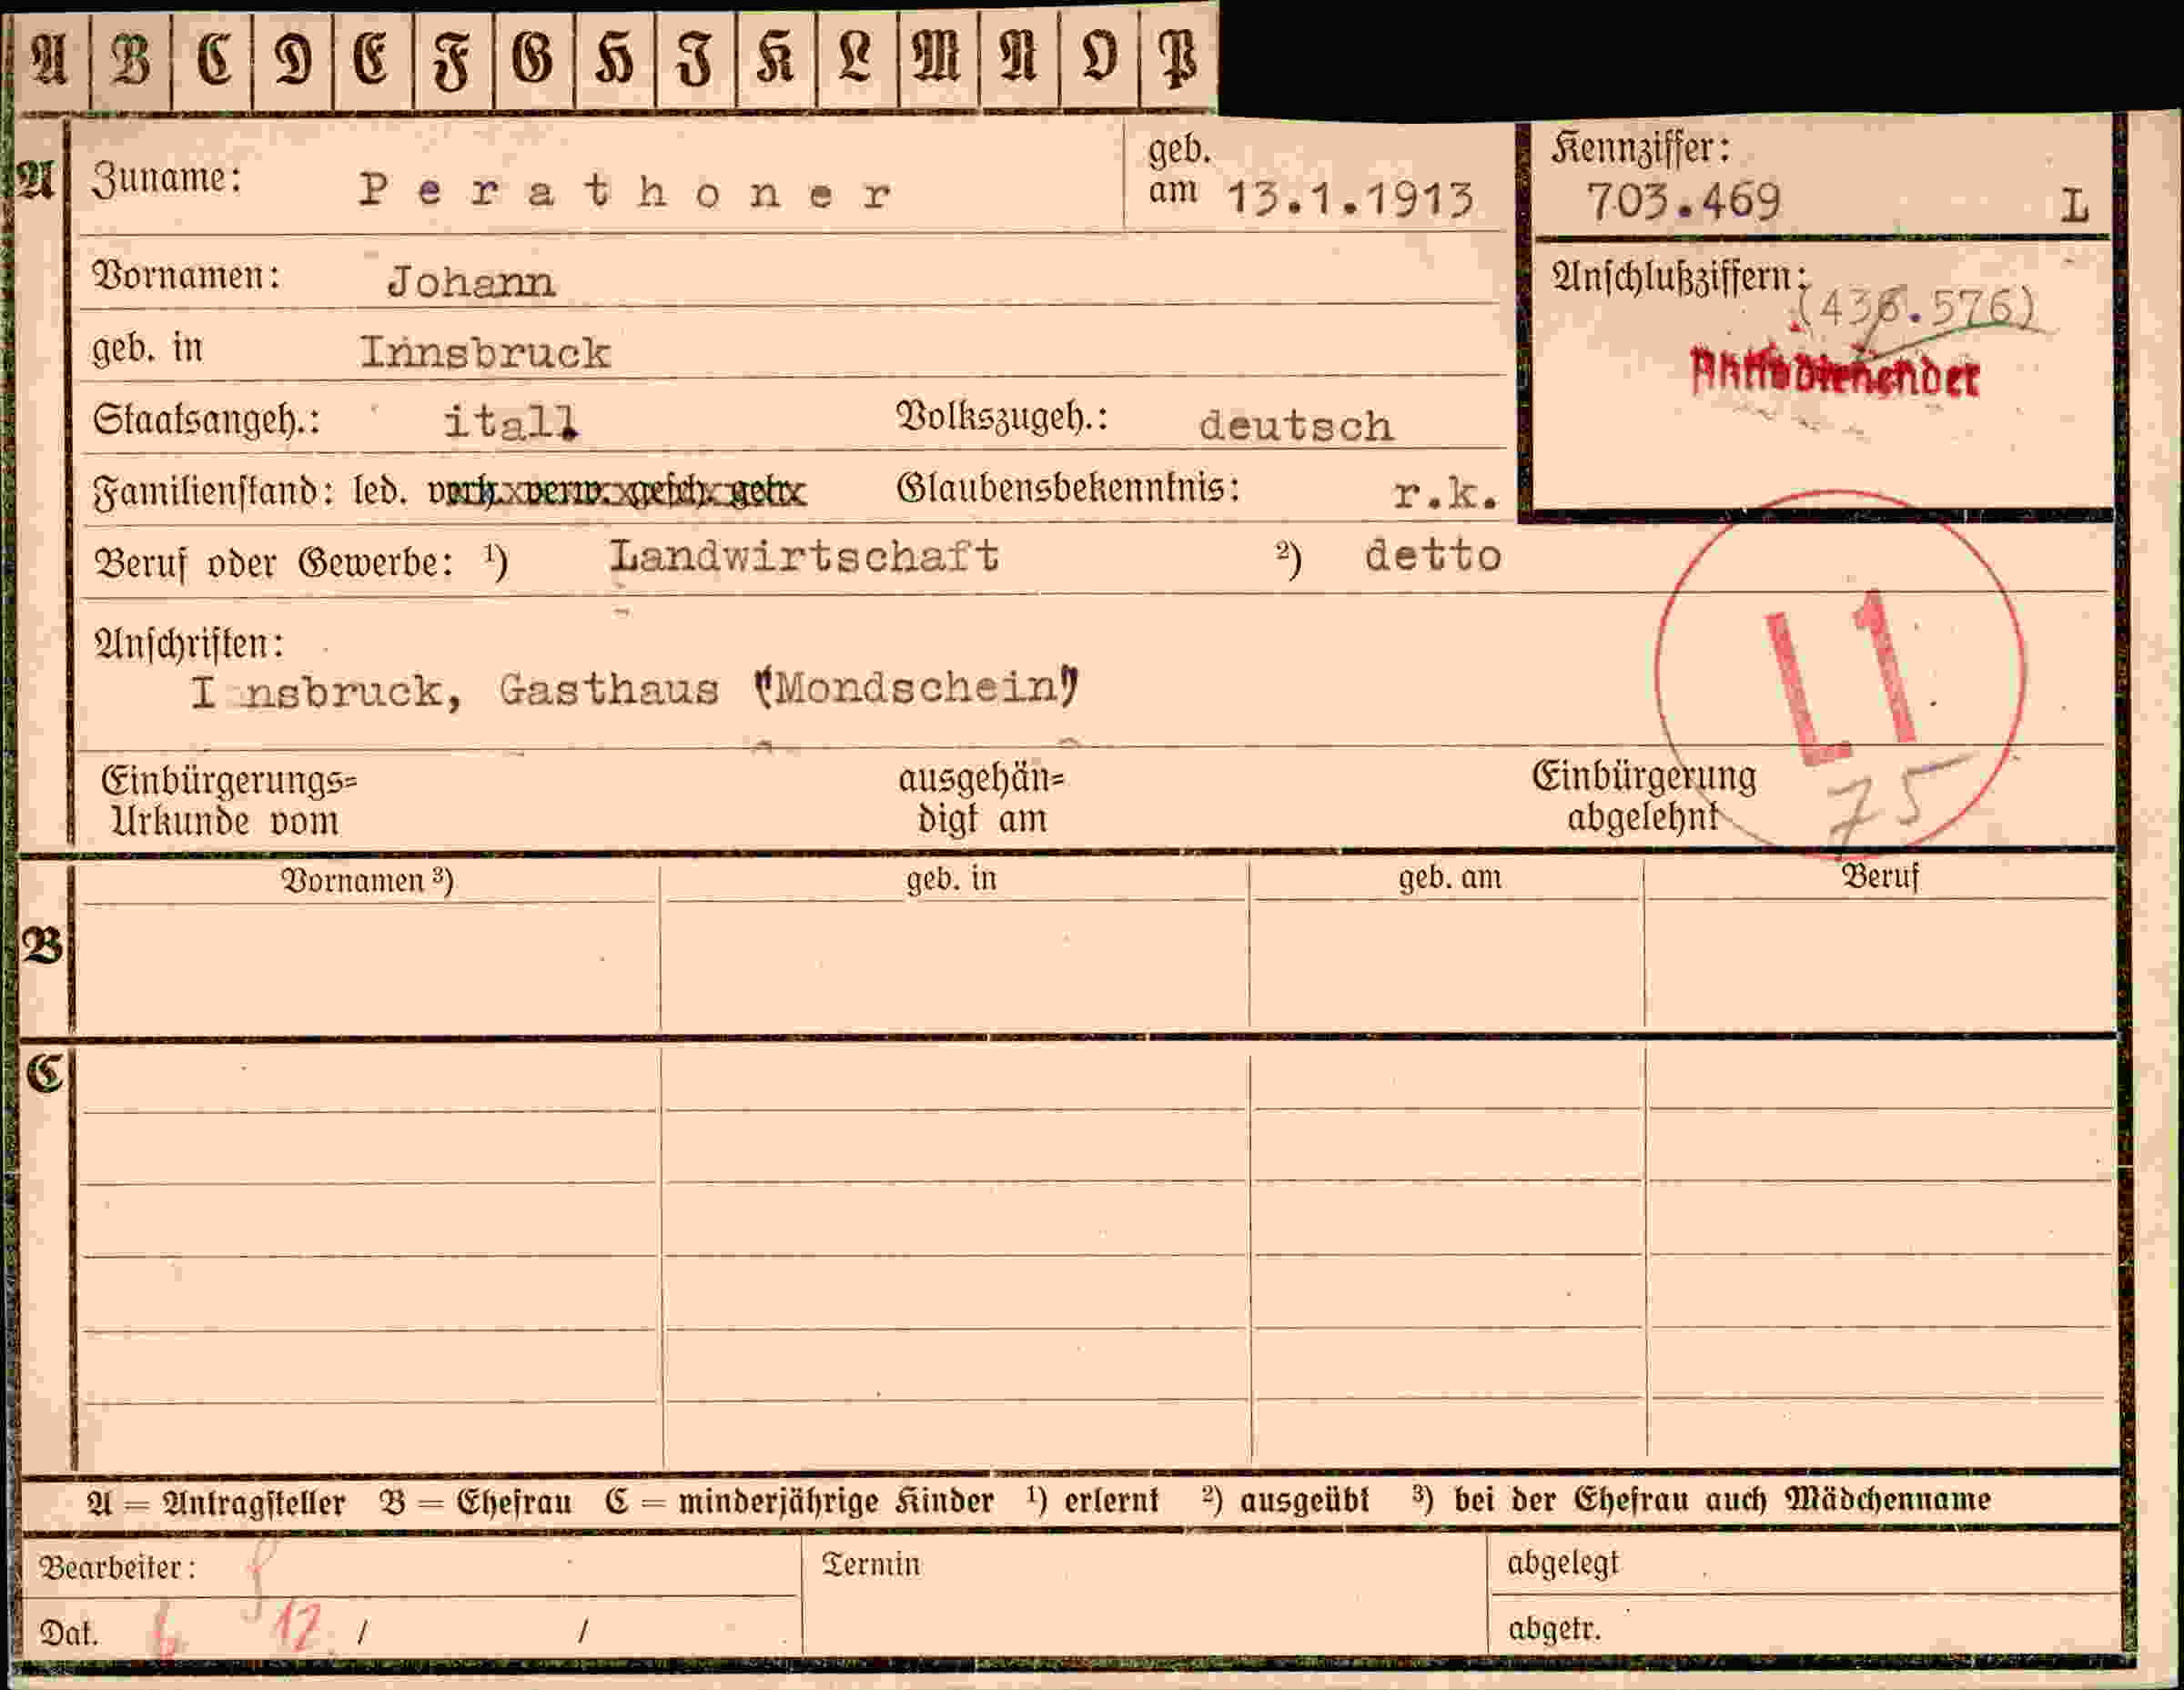 A B C D E F G H I K L M N O P
A
Zuname: Perathoner
geb. am 13.1.1913
Kennziffer:
703.469 L
Vornamen: Johann
Anschlußziffern:
(436.576)
geb. in Innsbruck
Staatsangeh.: ital. Volkszugeh.: deutsch
Familienstand: led. verh. verw. gesch. getr. Glaubensbekenntnis: r.k.
Beruf oder Gewerbe: ¹) Landwirtschaft ²) detto
Anschriften:
I nsbruck, Gasthaus "Mondschein"
L1
75
Einbürgerungs=
Urkunde vom
ausgehän=
digt am
Einbürgerung
abgelehnt
B
Vornamen ³) geb. in geb. am Beruf
C
A = Antragsteller B = Ehefrau C = minderjährige Kinder ¹) erlernt ²) ausgeübt ³) bei der Ehefrau auch Mädchenname
Bearbeiter:
Termin
abgelegt
Dat. 12 / /
abgetr.